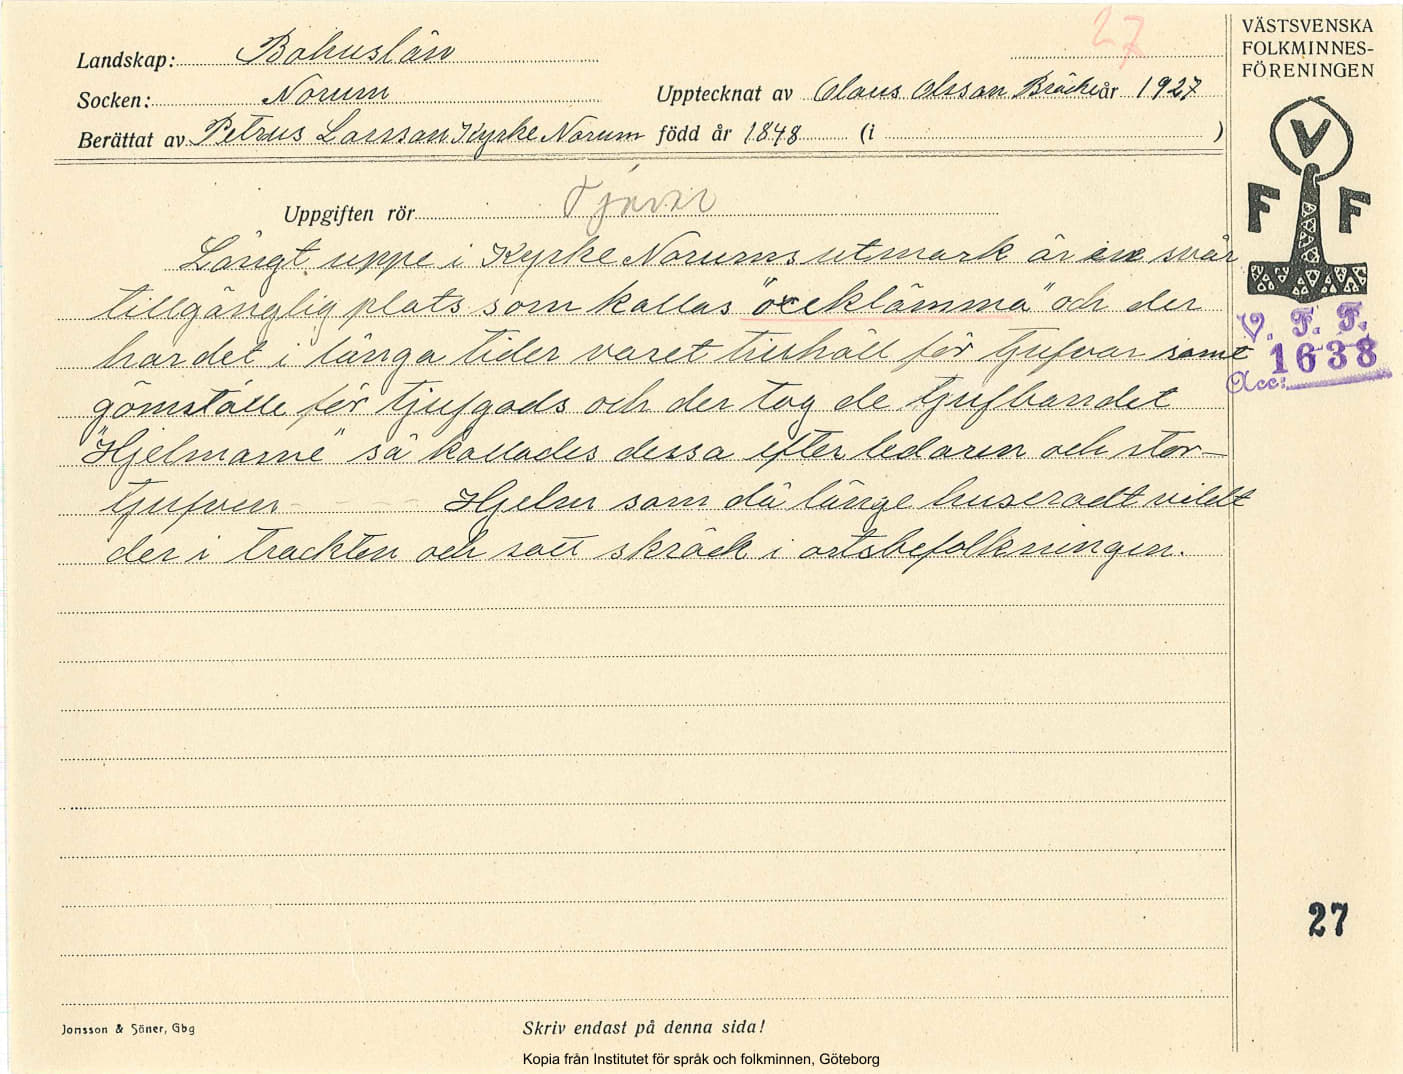 27
VÄSTSVENSKA
FOLKMINNES-
FÖRENINGEN
Landskap: Bohuslän
Socken: Norum
Upptecknat av Olaus Olsson Bräcke år 1927
Berättat av Petrus Larsson Kyrke Norum född år 1848 (i )
V
F F
Uppgiften rör
Långt uppe i Kyrke Norums utmark är en svår
tillgänglig plats som kallas "oxeklämma" och der
har det i långa tider varet tillhåll för tjufvar samt
gömställe för tjufgods och der tog de tjufbandet
"Hjelmarne" så kallades dessa efter ledaren och stor-
tjufven - - - - Hjelm som då länge huseradt vildt
der i trackten och satt skräck i ortsbefolkningen.
V. F. F.
1638
Acc:
27
Jonsson & Söner, Gbg
Skriv endast på denna sida!
Kopia från Institutet för språk och folkminnen, Göteborg